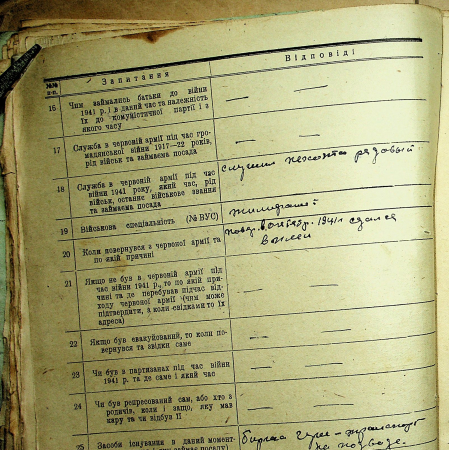 №№ п-п.
Запитання
Відповіді
16
Чим займались батьки до війни
1941 р.) в даний час та належність
їх до комуністичної партії і з
якого часу
— —
17
Служба в червоній армії під час гро-
мадянської війни 1917—22 років,
рід військ та займаєма посада
— —
18
Служба в червоній армії під час
війни 1941 року, який час, рід
військ, останнє військове звання
та займаєма посада
служил пехота рядовый
19
Військова спеціальність (№ ВУС)
20
Коли повернувся з червоної армії та
по якій причині
1941 г. сдался
в плен
21
Якщо не був в червоній армії під
час війни 1941 р., то по якій при-
чині та де перебував підчас від-
ходу червоної армії (чим може
підтвердити, з коли-свідками то їх
адреса)
— —
22
Якщо був евакуйований, то коли по-
вернувся та звідки саме
— —
23
Чи був в партизанах під час війни
1941 р. та де саме і який час
— —
24
Чи був репресований сам, або хто з
родичів, коли і защо, яку мав
кару та чи відбув її
— —
25
Засоби існування в даний момент-
займає посаду)